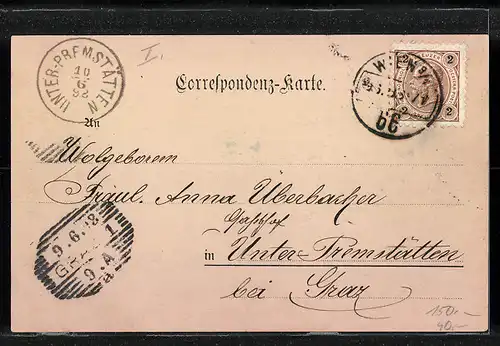 UNTER-PREMSTÄTTEN
10
6
98
I.
WIEN
66
2 2
2 2
Correspondenz-Karte.
An
Wolgeborem
Fräul. Anna Überbacher
Gasthof
in Unter-Premstätten
bei Graz
9.6.98
GRAZ 1
9.A
a
150.-
40,-